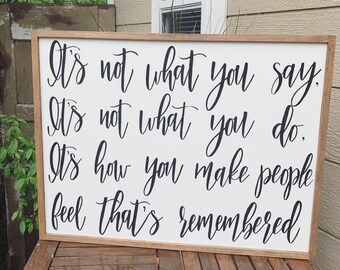 It's not what you say,
It's not what you do,
It's how you make people
feel that's remembered